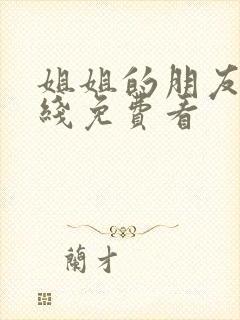 姐姐的朋友
綫免費看
蘭才